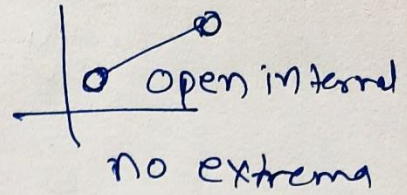 open interval
no extrema